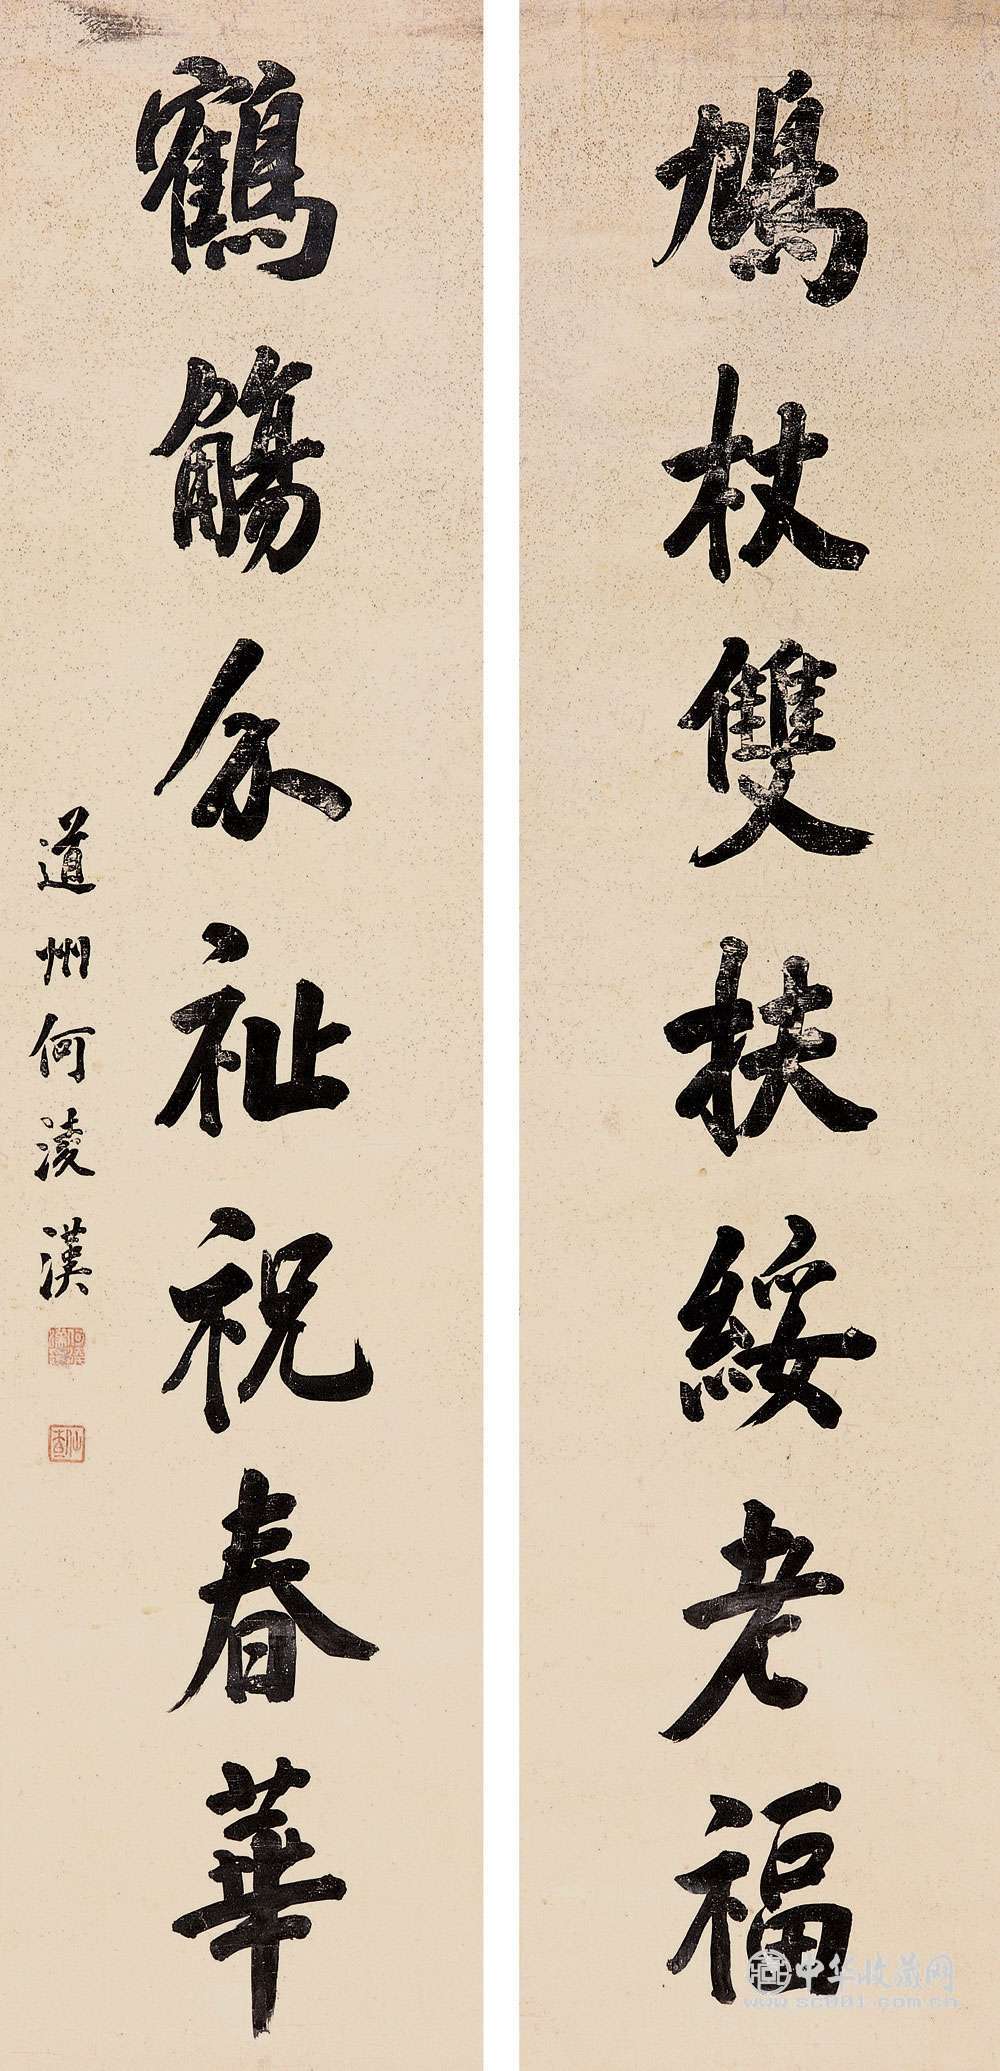 鳩杖雙扶綏老福
鶴觴介祉祝春華
道州何淩漢
中华收藏网
www.sc001.com.cn